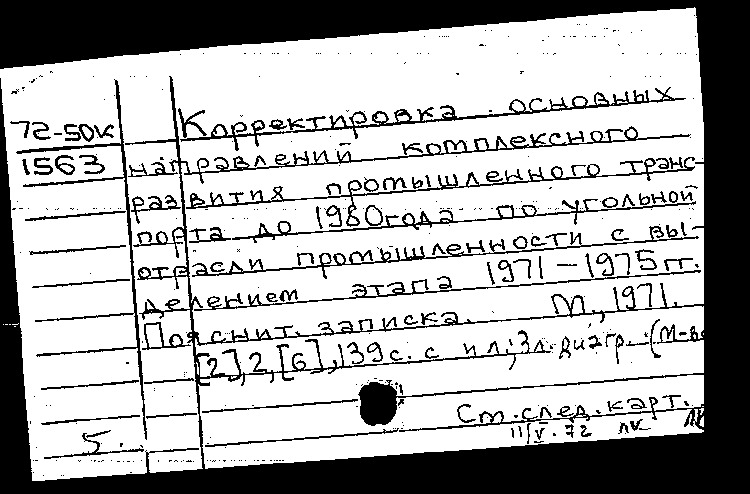 72-50к
1563
Корректировка основных
направлений комплексного
развития промышленного транс-
порта до 1980 года по угольной
отрасли промышленности с вы-
делением этапа 1971-1975 гг.
Пояснит. записка. М., 1971.
[2], 2, [6], 139 с. с ил.; 3 л. диагр. (М-во
См. след. карт.
5.
11/V-72 лк